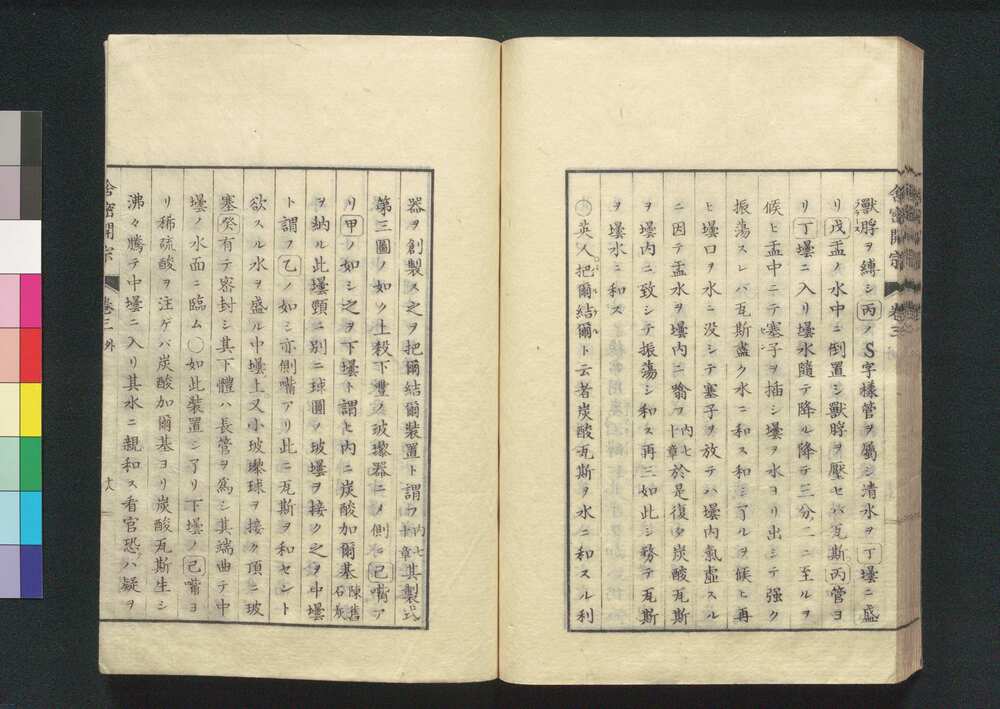 舍密開宗 卷三
獸脬ヲ縛シ丙ノS字樣管ヲ屬シ清水ヲ丁壜ニ盛
リ戊盂ノ水中ニ倒置シ獸脬ヲ壓セバ瓦斯丙管ヨ
リ丁壜ニ入リ壜水隨テ降ル降テ三分二ニ至ルヲ
候ヒ盂中ニテ塞子ヲ插シ壜ヲ水ヨリ出シテ强ク
振蕩スレバ瓦斯盡ク水ニ和ス和シ了ルヲ候ヒ再
ヒ壜口ヲ水ニ没シテ塞子ヲ放テハ壜内氣虛スル
ニ因テ盂水ヲ壜内ニ翕フ内七十章於是復タ炭酸瓦斯
ヲ壜内ニ致シテ振蕩シ和ス再三如此シ務テ瓦斯
ヲ壜水ニ和ス
英人把爾結爾ト云者炭酸瓦斯ヲ水ニ和スル利
器ヲ創製ス之ヲ把爾結爾裝置ト謂フ内七十章其製式
第三圖ノ如ク上殺下豐ノ玻瓈器ニノ側ニ己嘴ア
リ甲ノ如シ之ヲ下壜ト謂ヒ内ニ炭酸加爾基陳舊石灰
ヲ納ル此壜頸ニ別ニ球圓ノ玻壜ヲ接ク之ヲ中壜
ト謂フ乙ノ如シ亦側嘴アリ此ニ瓦斯ヲ和セント
欲スル水ヲ盛ル中壜上又小玻瓈球ヲ接ク頂ニ玻
塞癸有テ密封シ其下體ハ長管ヲ爲シ其端曲テ中
壜ノ水面ニ臨ム○如此裝置シ了リ下壜ノ己嘴ヨ
リ稀硫酸ヲ注ゲバ炭酸加爾基ヨリ炭酸瓦斯生シ
沸々騰テ中壜ニ入リ其水ニ親和ス看官恐ハ疑ヲ
舍密開宗 卷三 外